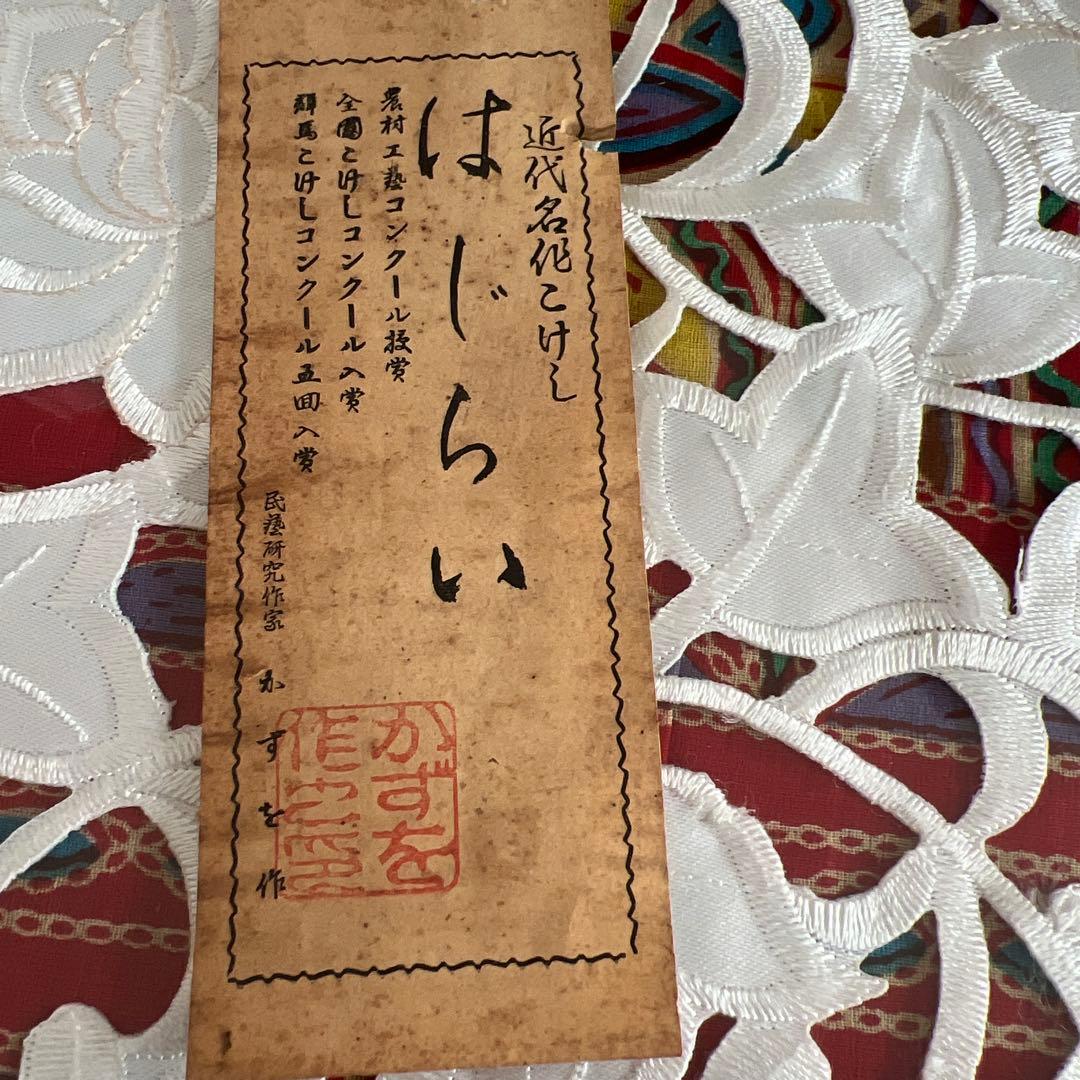 近代名作こけし
はじらい
農村工藝コンクール授賞
全國こけしコンクール入賞
群馬こけしコンクール五回入賞
民藝研究作家 かずを作
かずを
作